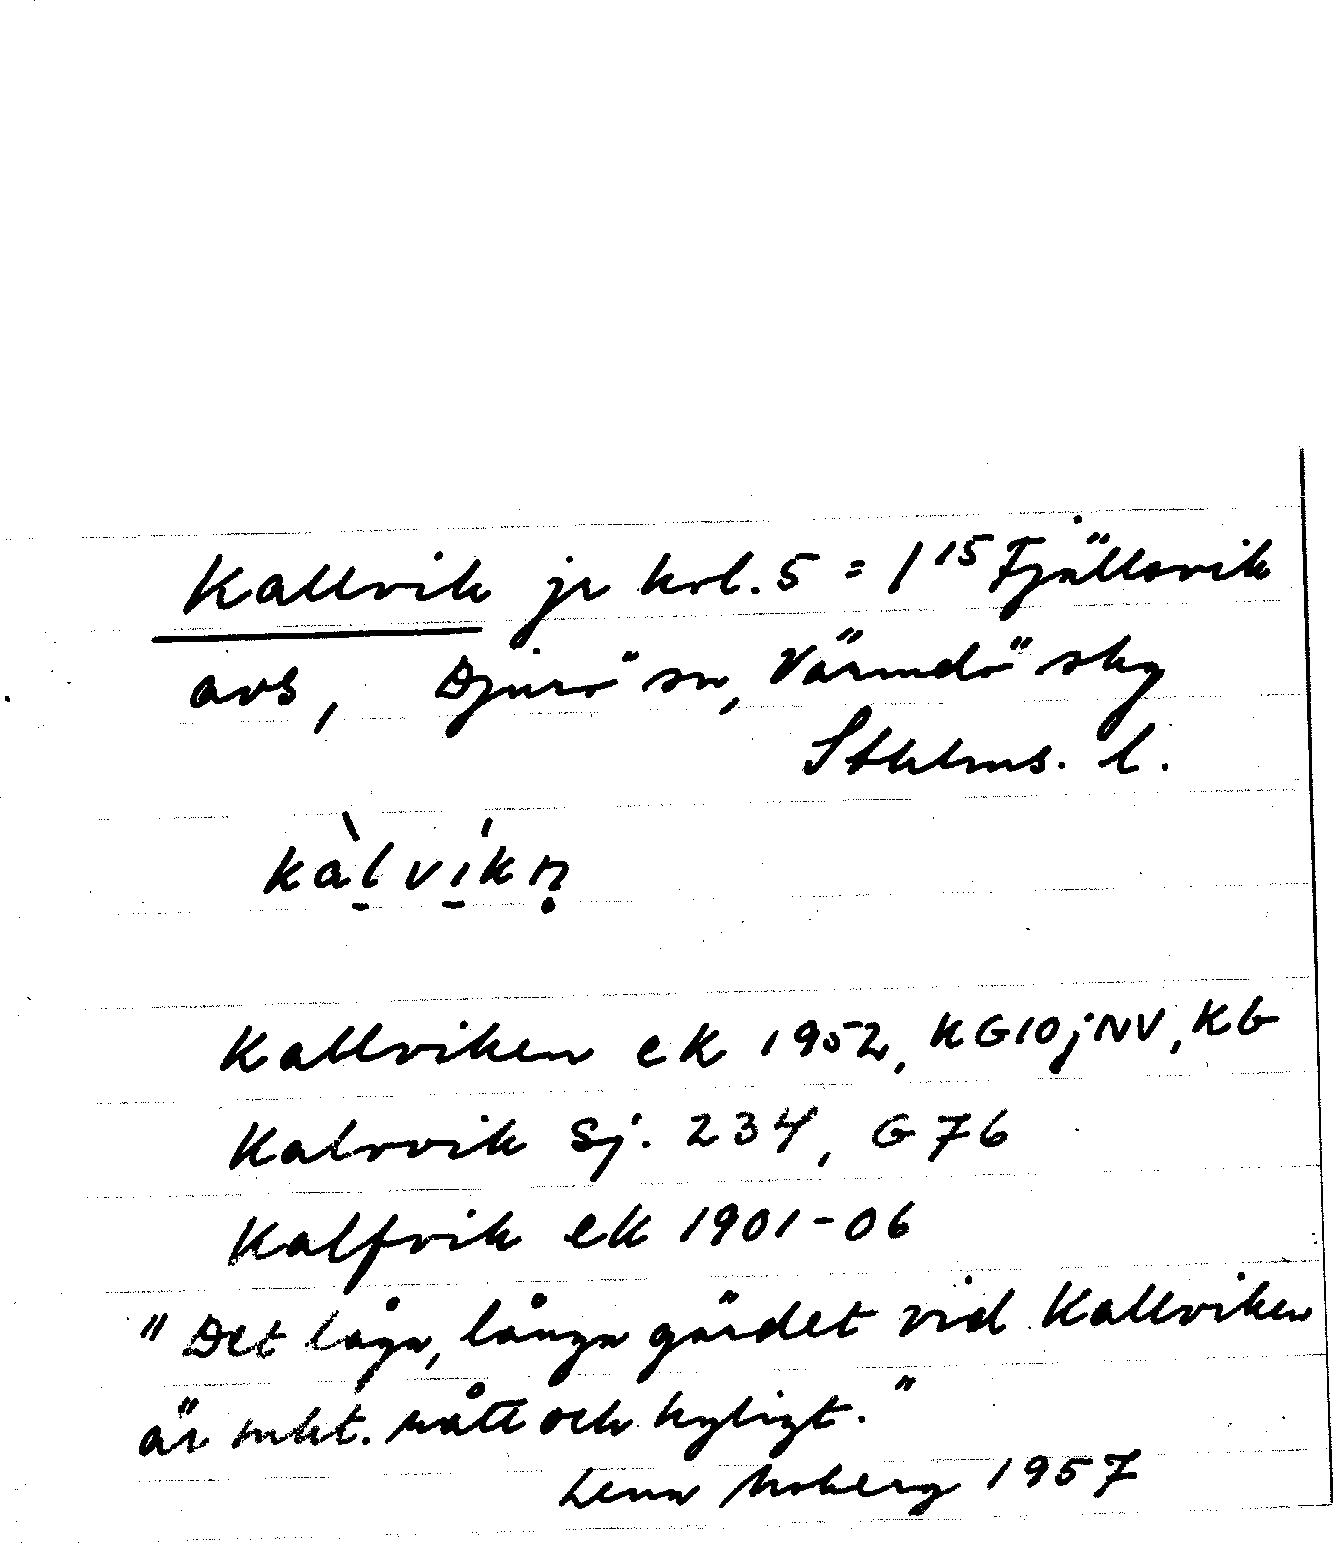 Kallvik jr kol. 5 = 1 15 Fjällsvik
avs, Djurö sn, Värmdö sky
Sthlms. l.
kàl̠ví̠kṇ
Kallviken ek 1952, KG10jNV, KG
Kalvvik Sj. 234, G76
Kalfvik ek 1901-06
"Det låga, långa gärdet vid Kallviken
är mkt. rått och kyligt."
Lena Moberg 1957